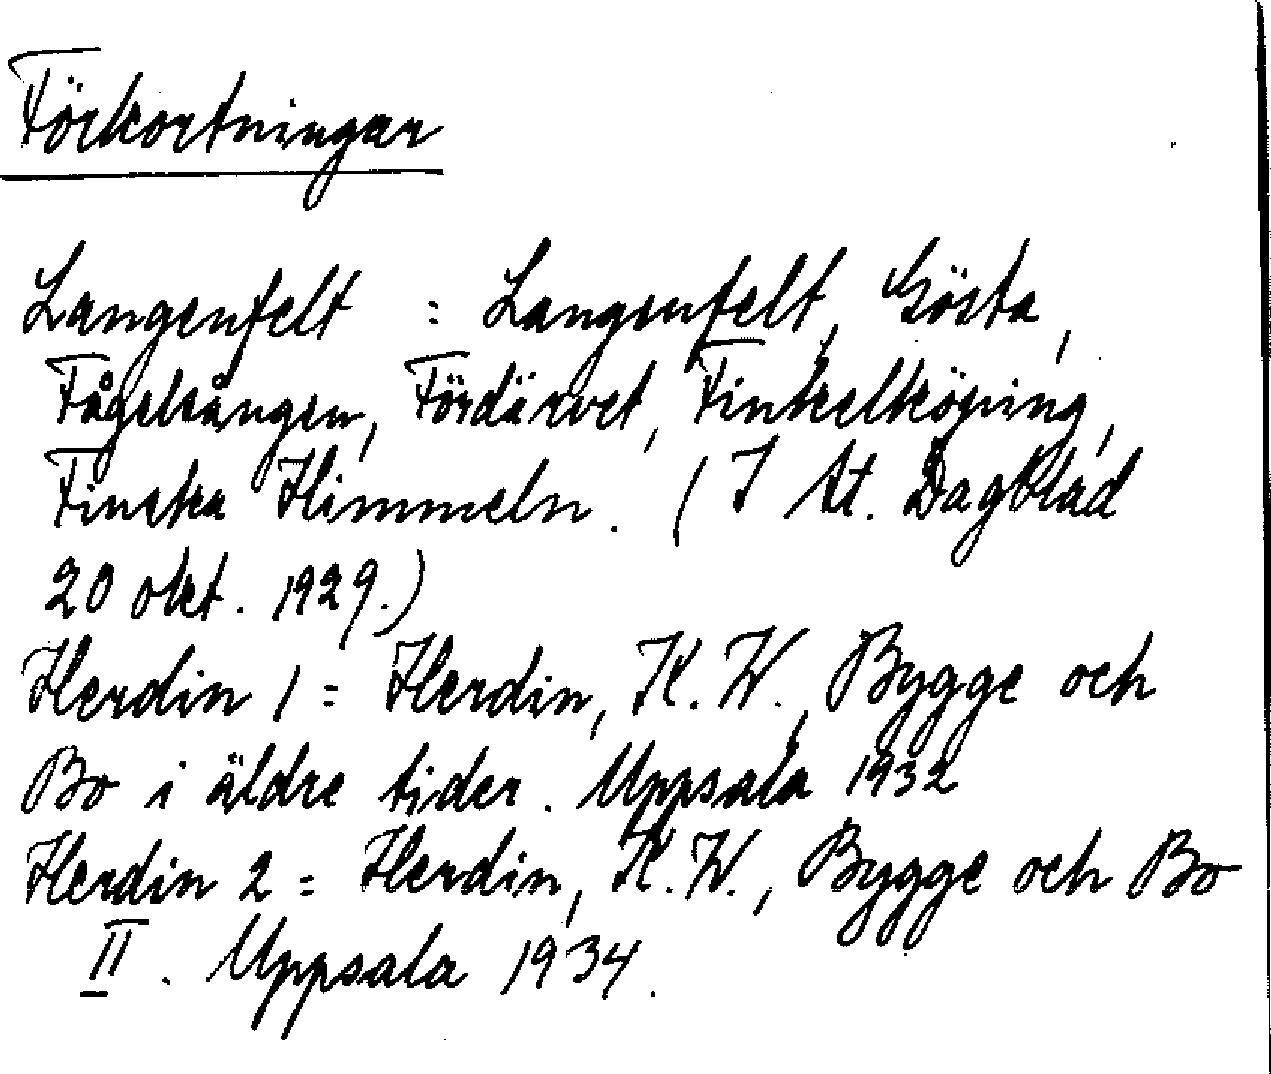 Förkortningar
Langenfelt : Langenfelt, Gösta,
Fågelsången, Fördärvet, Finkelköping,
Finska Himmeln. (I St. Dagblad
20 okt. 1929.)
Herdin 1 = Herdin, K. W., Bygge och
Bo i äldre tider. Uppsala 1932
Herdin 2 = Herdin, K. W., Bygge och Bo
II. Uppsala 1934.